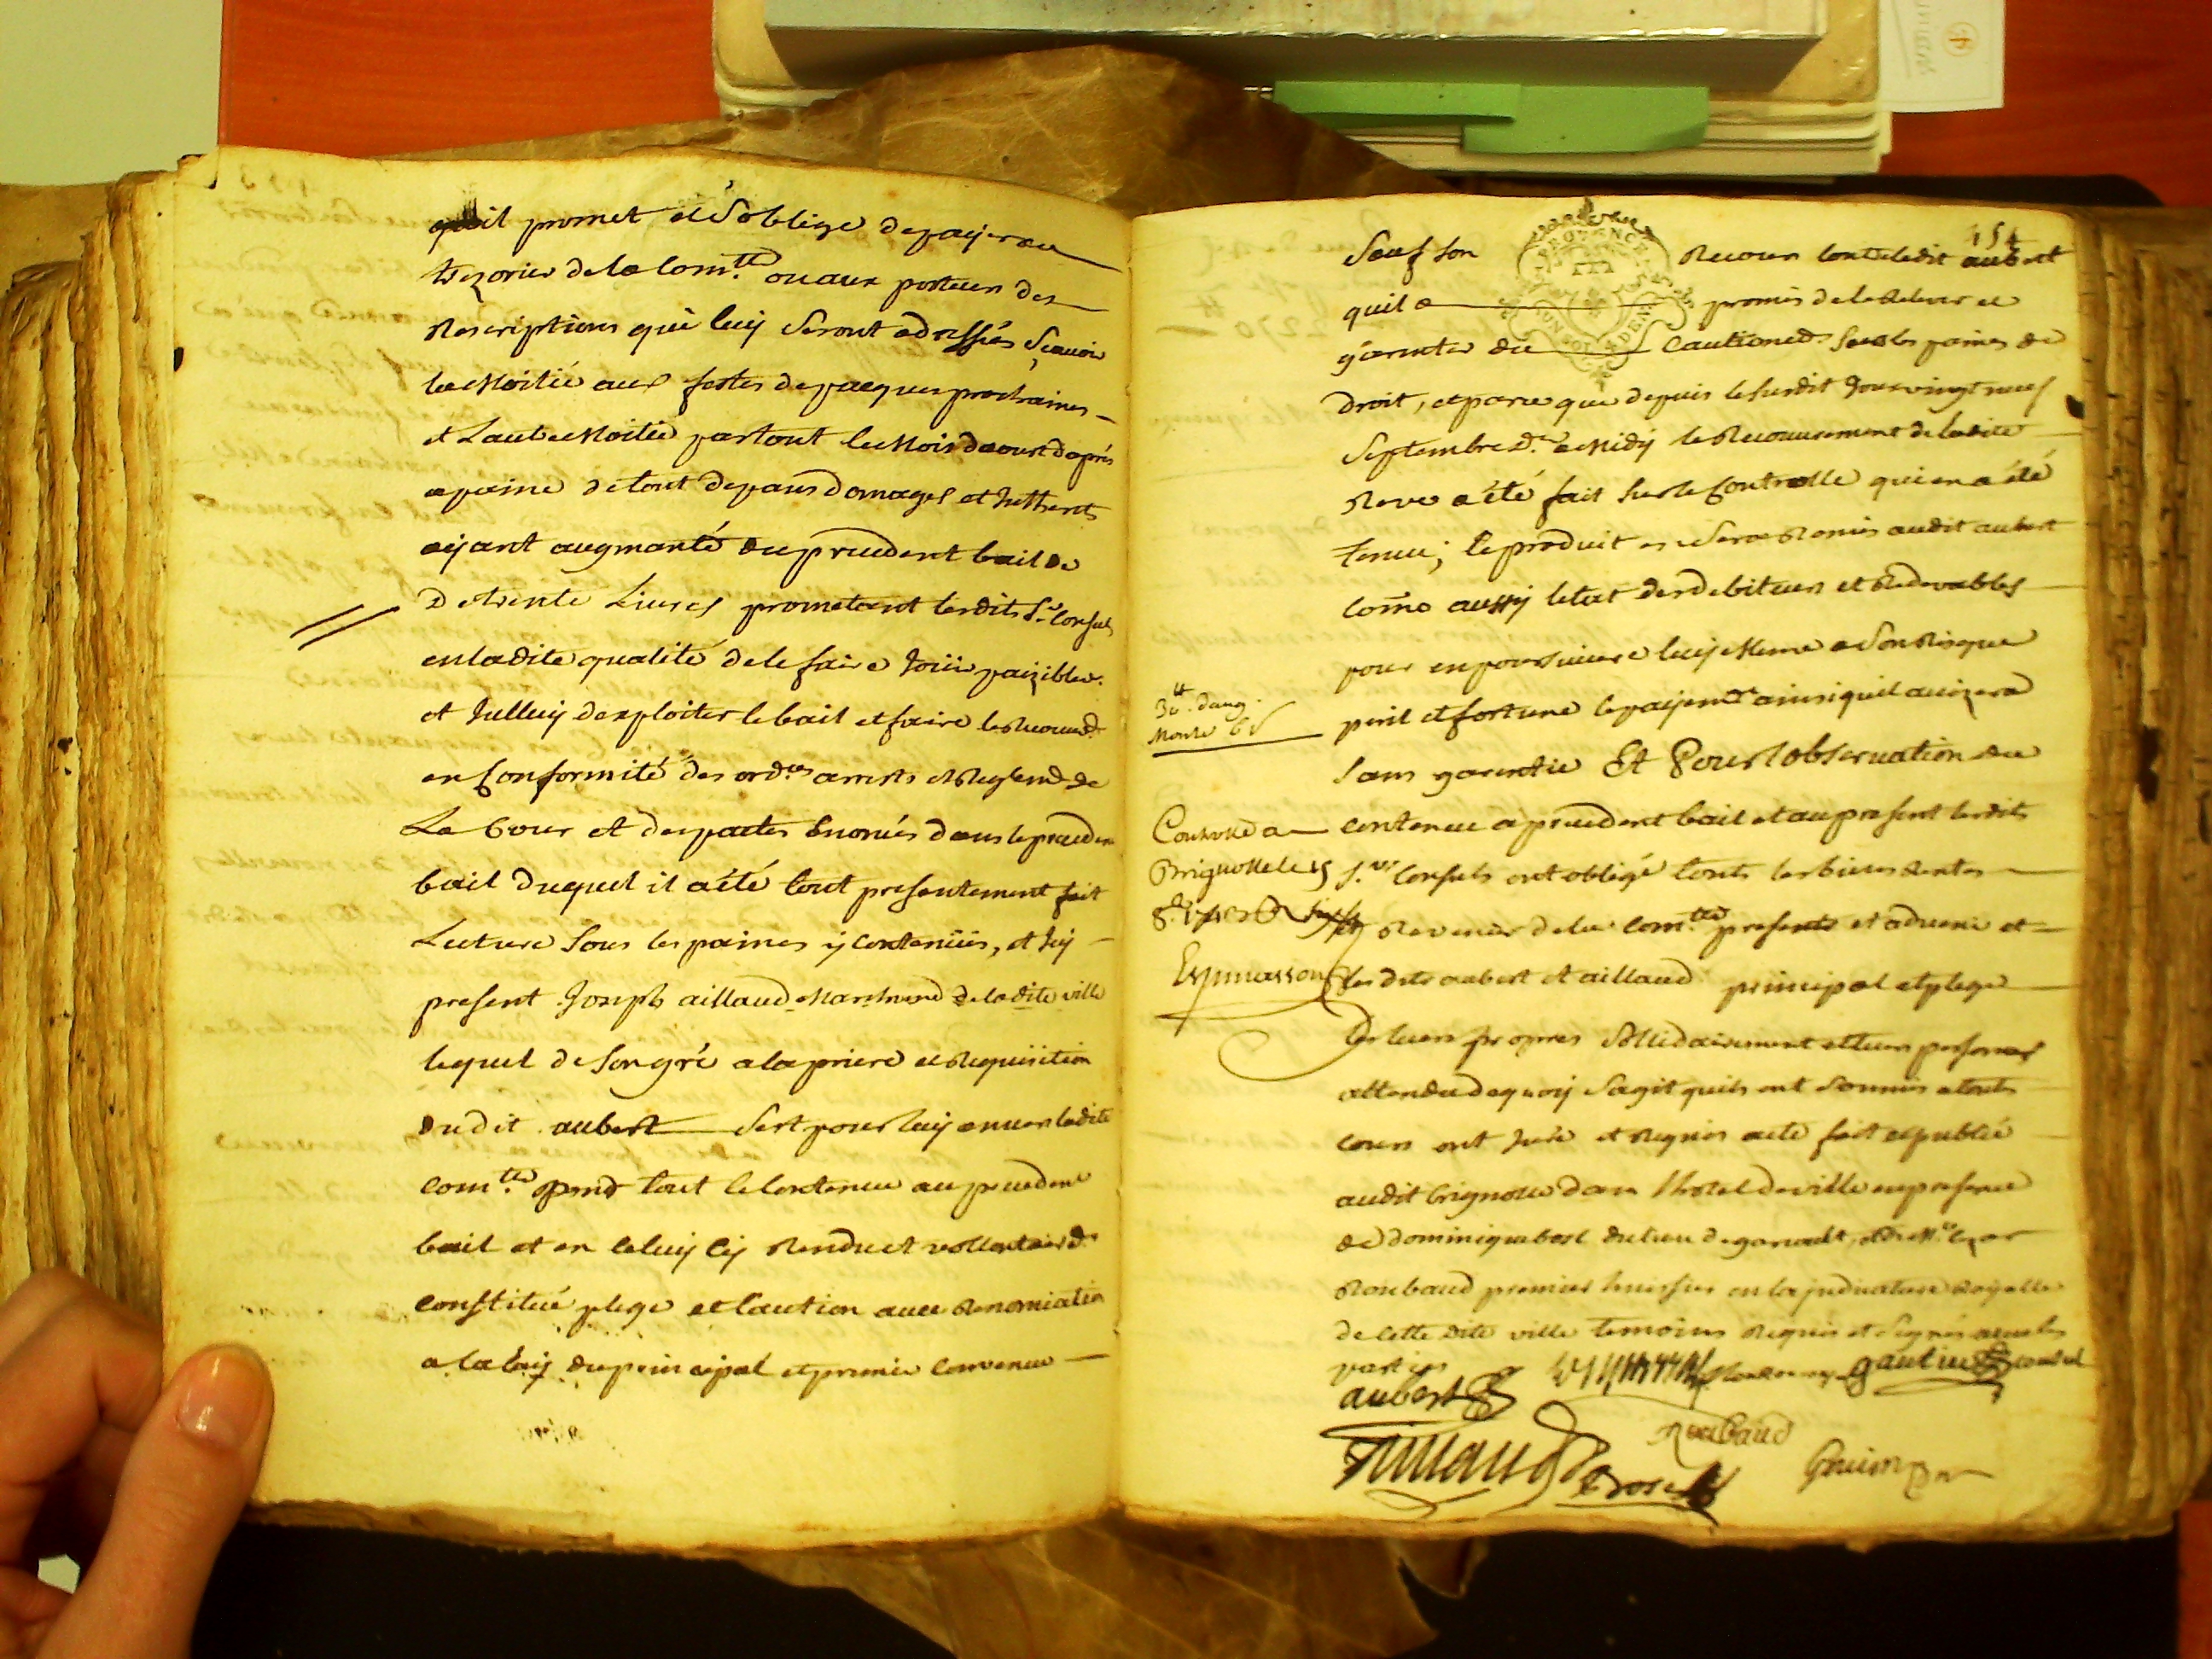 quil promet et S'oblige de payer au
trezorier de la Com.tté ou aux porteurs des
Rescriptions qui luy Seront adressées Scavoir
la Moitié aux festes de pacques prochaines
et Lautre Moitié par tout le Mois daoust daprés
a peine de tout depans domages et Inthérets
ayant augmanté du precedent bail de
De trente Livres prometant lesdits Sr. Consuls
en ladite qualité de le faire Joüir paizible.
et Iulluy dexploiter le bail et faire le Recouv.t
en Conformité des ord.ces arrests et Reglem.t de
La Cour et des pactes Enoncés dans le precedent
bail duquel il a été tout presentement fait
Lecture Sous les paines y contenües, et Icy
present Joseph aillaud Marchand de ladite ville
lequel de Son gré a la priere et Requisition
dudit aubert Sest pour luy envers ladite
com.tté tout le Contenu au precedent
bail et en celuy Cy Rendu et vollontairem.t
constitué plege et Caution avec Renonciation
a la Loy du principal et premier Convenu
154
Sauf Son Recours Contre ledit aubert
quil a promis de le Relever et
garentir du Cautionem.t Sous les paines de
Droit, et parce que depuis le Susdit Jour vingt neuf
Septembre d.er a Midy le Recouvrement de ladite
Reve a été fait Sur le Controlle qui en a été
Tenu; le produit en Sera Remis audit aubert
Comme aussy letat des debiteurs et Redevables
pour en poursuivre luy Meme a Son Risque
peril et fortune le payem.t ainsi quil avizera
Sans garentie Et Pour lobservation du
30.tt daug.
Monte 6
contenu a precedent bail et au present lesdits
Controllé a
Brignolle le 15
S.rs Consuls ont obligé touts les biens Rentes
Revenus de la Com.tté presents et advenir et
Espinasson
lesdits aubert et aillaud principal et plege
Les leurs propres Sollidairement et leurs personnes
attendu de quoy Sagit quils ont Soumis a touts
Cours ont Juré et Requis acte fait et publié
audit Brignolle dans lhotel de ville en presence
de dominique bosc du lieu de garoult, et de M.e
Roubaud premier huissier en la judicature Royalle
de cette dite ville temoins Requis et Signés avec les
parties
gautier Consul
aubert
Roubaud
aillaud